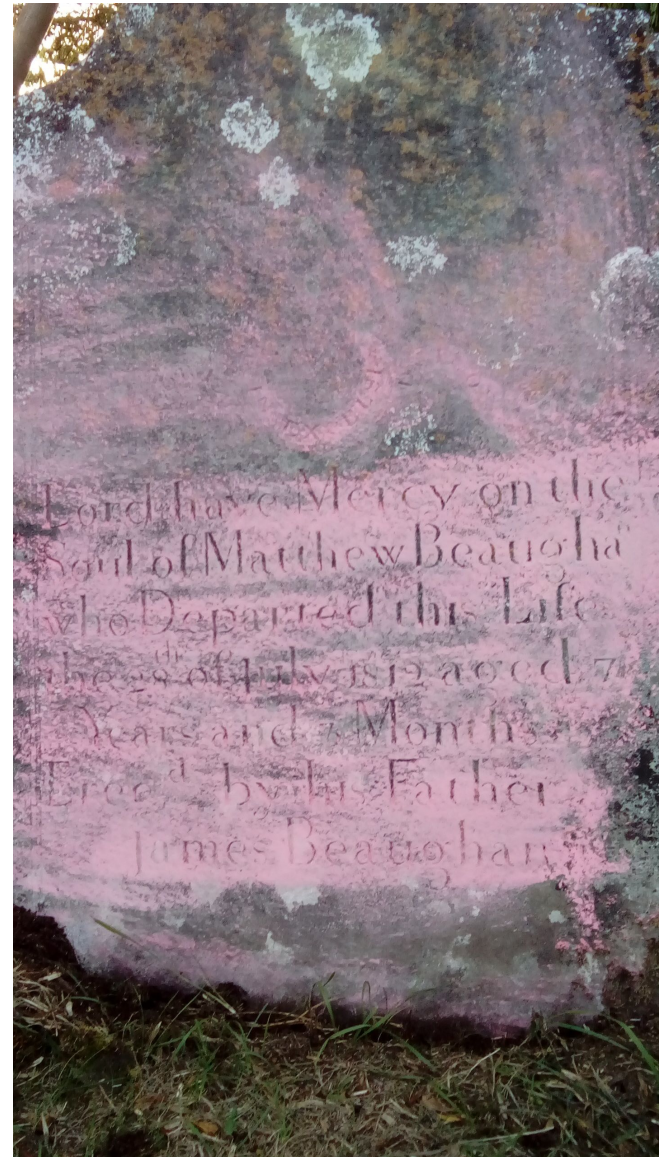 Lord have Mercy on the
Soul of Matthew Beaugha n
who Departed this Life
the 28th of July 1819 aged 7
Years and Months
Erecd by his Father
James Beaughan